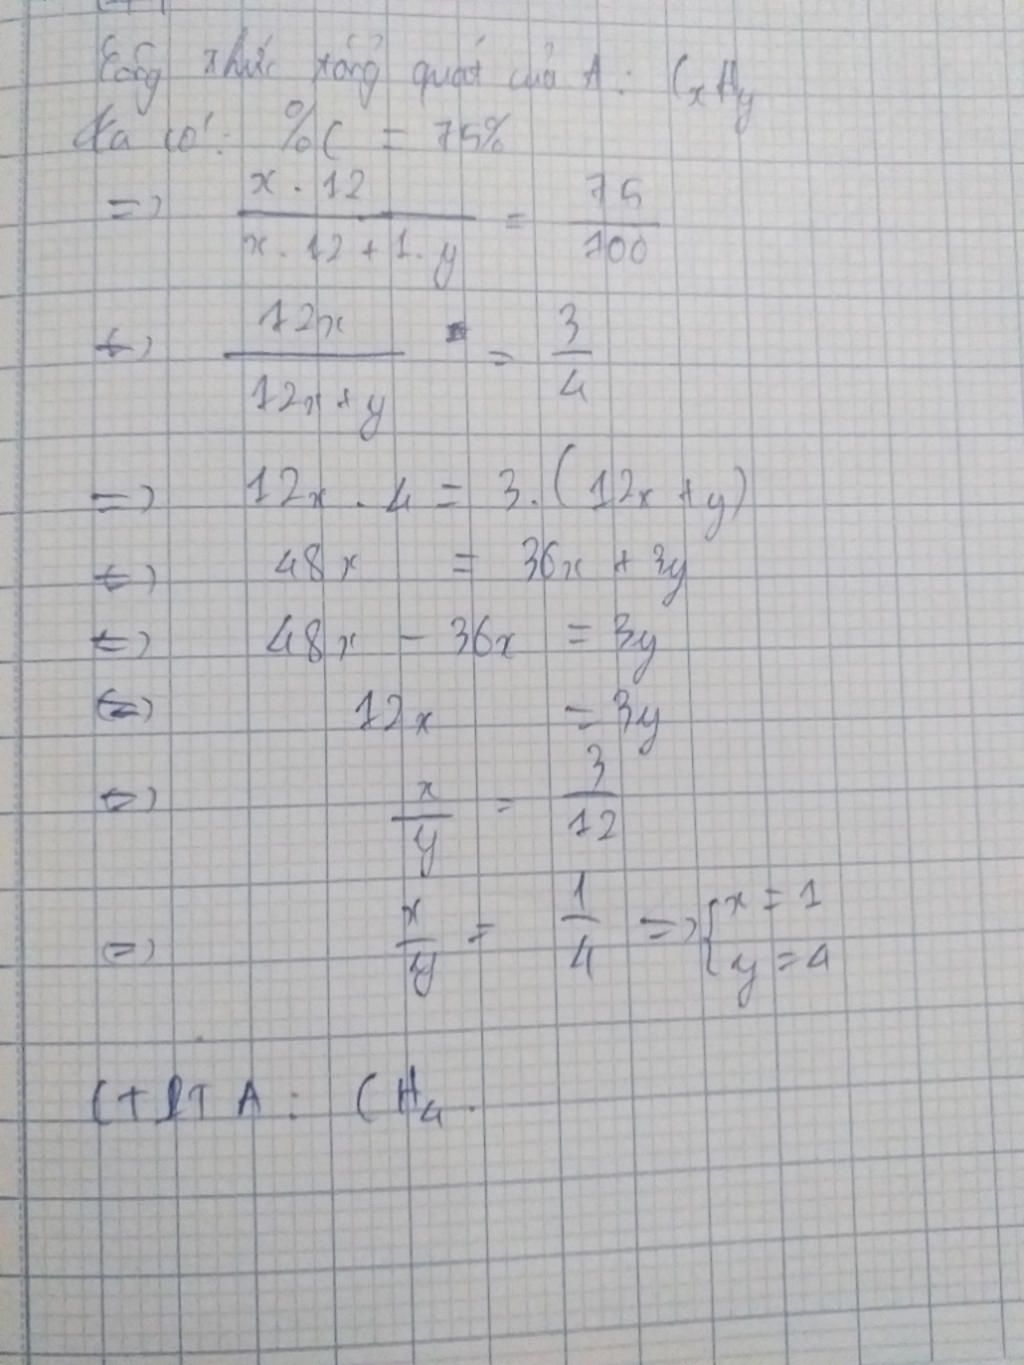 Công thức tổng quát của A: CxHy
Ta có: %C = 75%
=> x . 12 / x . 12 + 1 . y = 75 / 100
<=> 12x / 12x + y = 3 / 4
=> 12x . 4 = 3 . (12x + y)
<=> 48x = 36x + 3y
<=> 48x - 36x = 3y
<=> 12x = 3y
<=> x / y = 3 / 12
<=> x / y = 1 / 4 => { x = 1
y = 4
CTPT A: CH4.